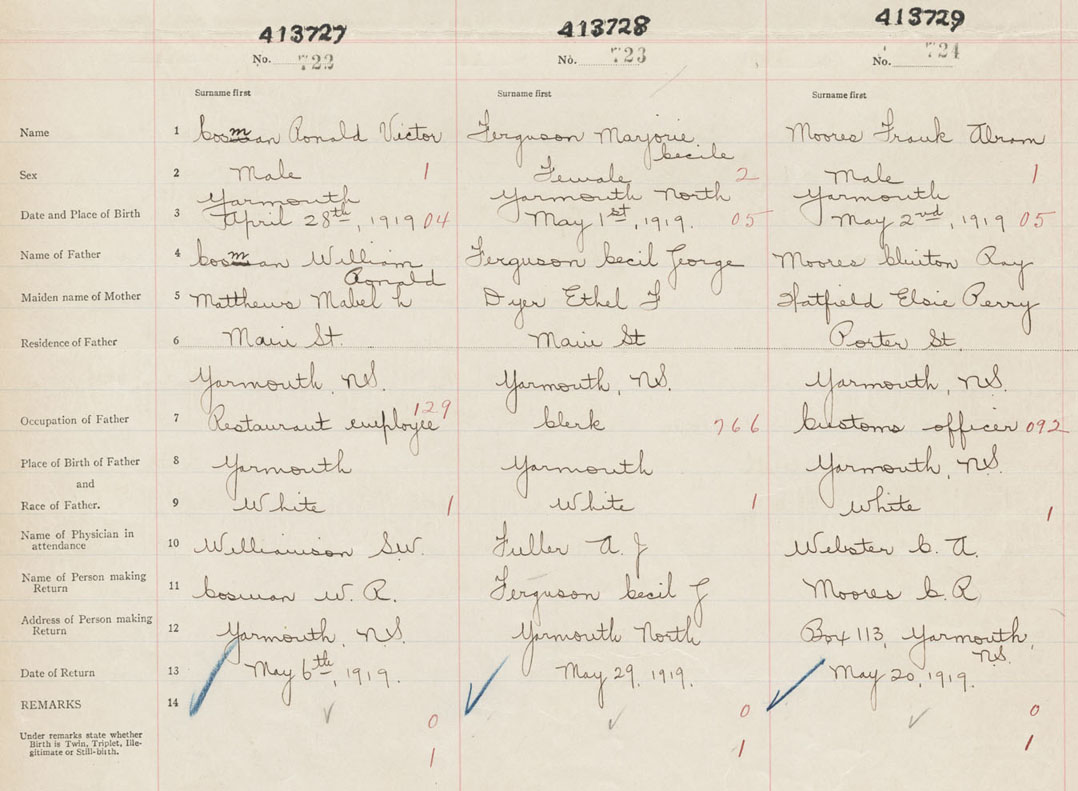 413727 413728 413729
No. 722 No. 723 No. 724
Surname first Surname first Surname first
Name 1 Cosman Ronald Victor Ferguson Marjorie Moores Frank Abram
Cecile
Sex 2 Male 1 Female 2 Male 1
Yarmouth Yarmouth North Yarmouth
Date and Place of Birth 3 April 28th, 1919 04 May 1st, 1919. 05 May 2nd, 1919 05
Name of Father 4 Cosman William Ferguson Cecil George Moores Clinton Ray
Ronald
Maiden name of Mother 5 Matthews Mabel L Dyer Ethel F Hatfield Elsie Perry
Residence of Father 6 Main St. Main St Porter St.
Yarmouth, N.S. Yarmouth, N.S. Yarmouth, N.S.
129
Occupation of Father 7 Restaurant employee Clerk 766 Customs officer 092
Place of Birth of Father 8 Yarmouth Yarmouth Yarmouth, N.S.
and
Race of Father. 9 White 1 White 1 White 1
Name of Physician in
attendance 10 Williamson S.W. Fuller A. J Webster C. A.
Name of Person making
Return 11 Cosman W. R. Ferguson Cecil G Moores C. R
Address of Person making
Return 12 Yarmouth, N.S. Yarmouth North Box 113, Yarmouth,
N.S.
Date of Return 13 May 6th, 1919. May 29, 1919. May 20, 1919.
REMARKS 14
0 0 0
Under remarks state whether
Birth is Twin, Triplet, Ille-
gitimate or Still-birth.
1 1 1